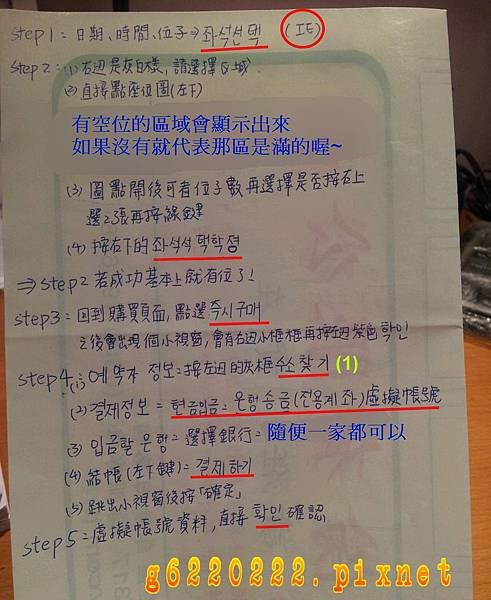 step1 = 日期、時間、位子⇒좌석선택 (IE)
step2 = (1)右边是灰白樣，請選擇区域
(2)直接點座位圖(左下)
有空位的區域會顯示出來
如果沒有就代表那區是滿的喔~
(3) 圖點開後可看位子數再選擇是否按右上
選2張再按綠鍵
(4) 按右下的좌석선택확정
⇒step2 若成功基本上就有位了!
step3 = 回到購買頁面,點選즉시구매
之後會出現個小視窗,會有右边小框框再按左边紫色확인
step4=(1) 예약자 정보=按左边的灰框주소찾기 (1)
(2)결제정보 = 현금입금=은행송금(전용계좌)虛擬帳號
(3) 입금할 은행= 選擇銀行= 隨便一家都可以
(4) 結帳(左下鍵)=결제하기
(5) 跳出小視窗後按「確定」
step5=虛擬帳號資料,直接확인確認
g6220222.pixnet